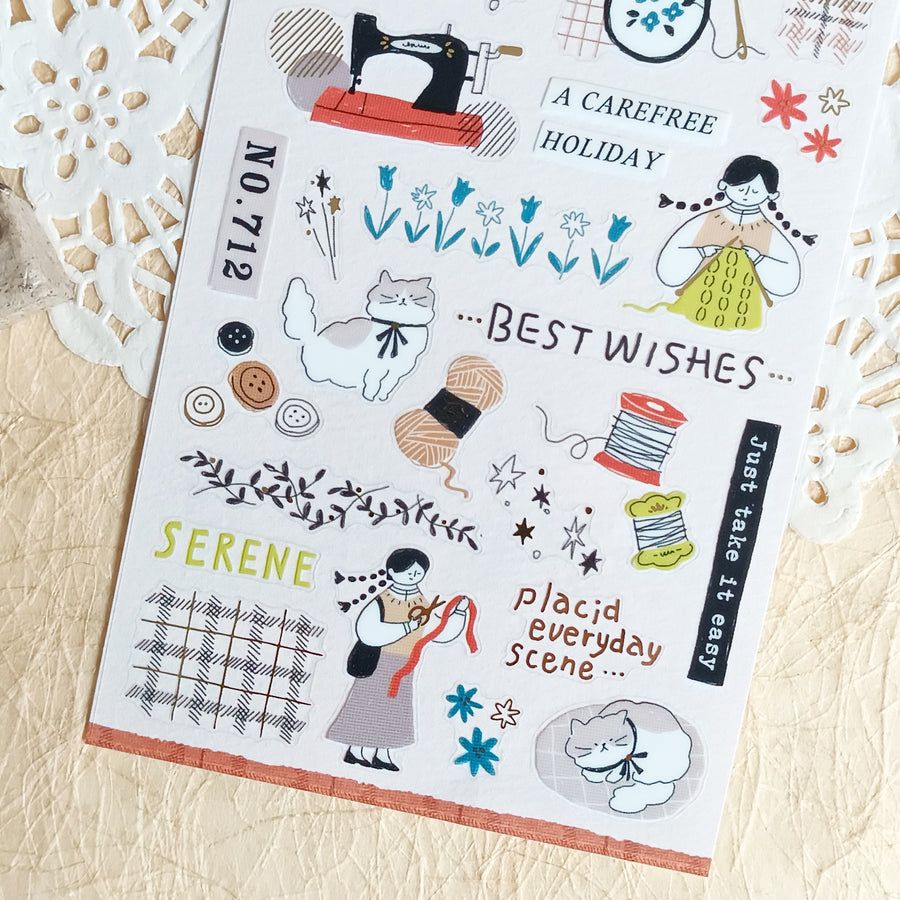 A CAREFREE
HOLIDAY
NO.712
BEST WISHES
Just take it easy
SERENE
placid
everyday
scene...